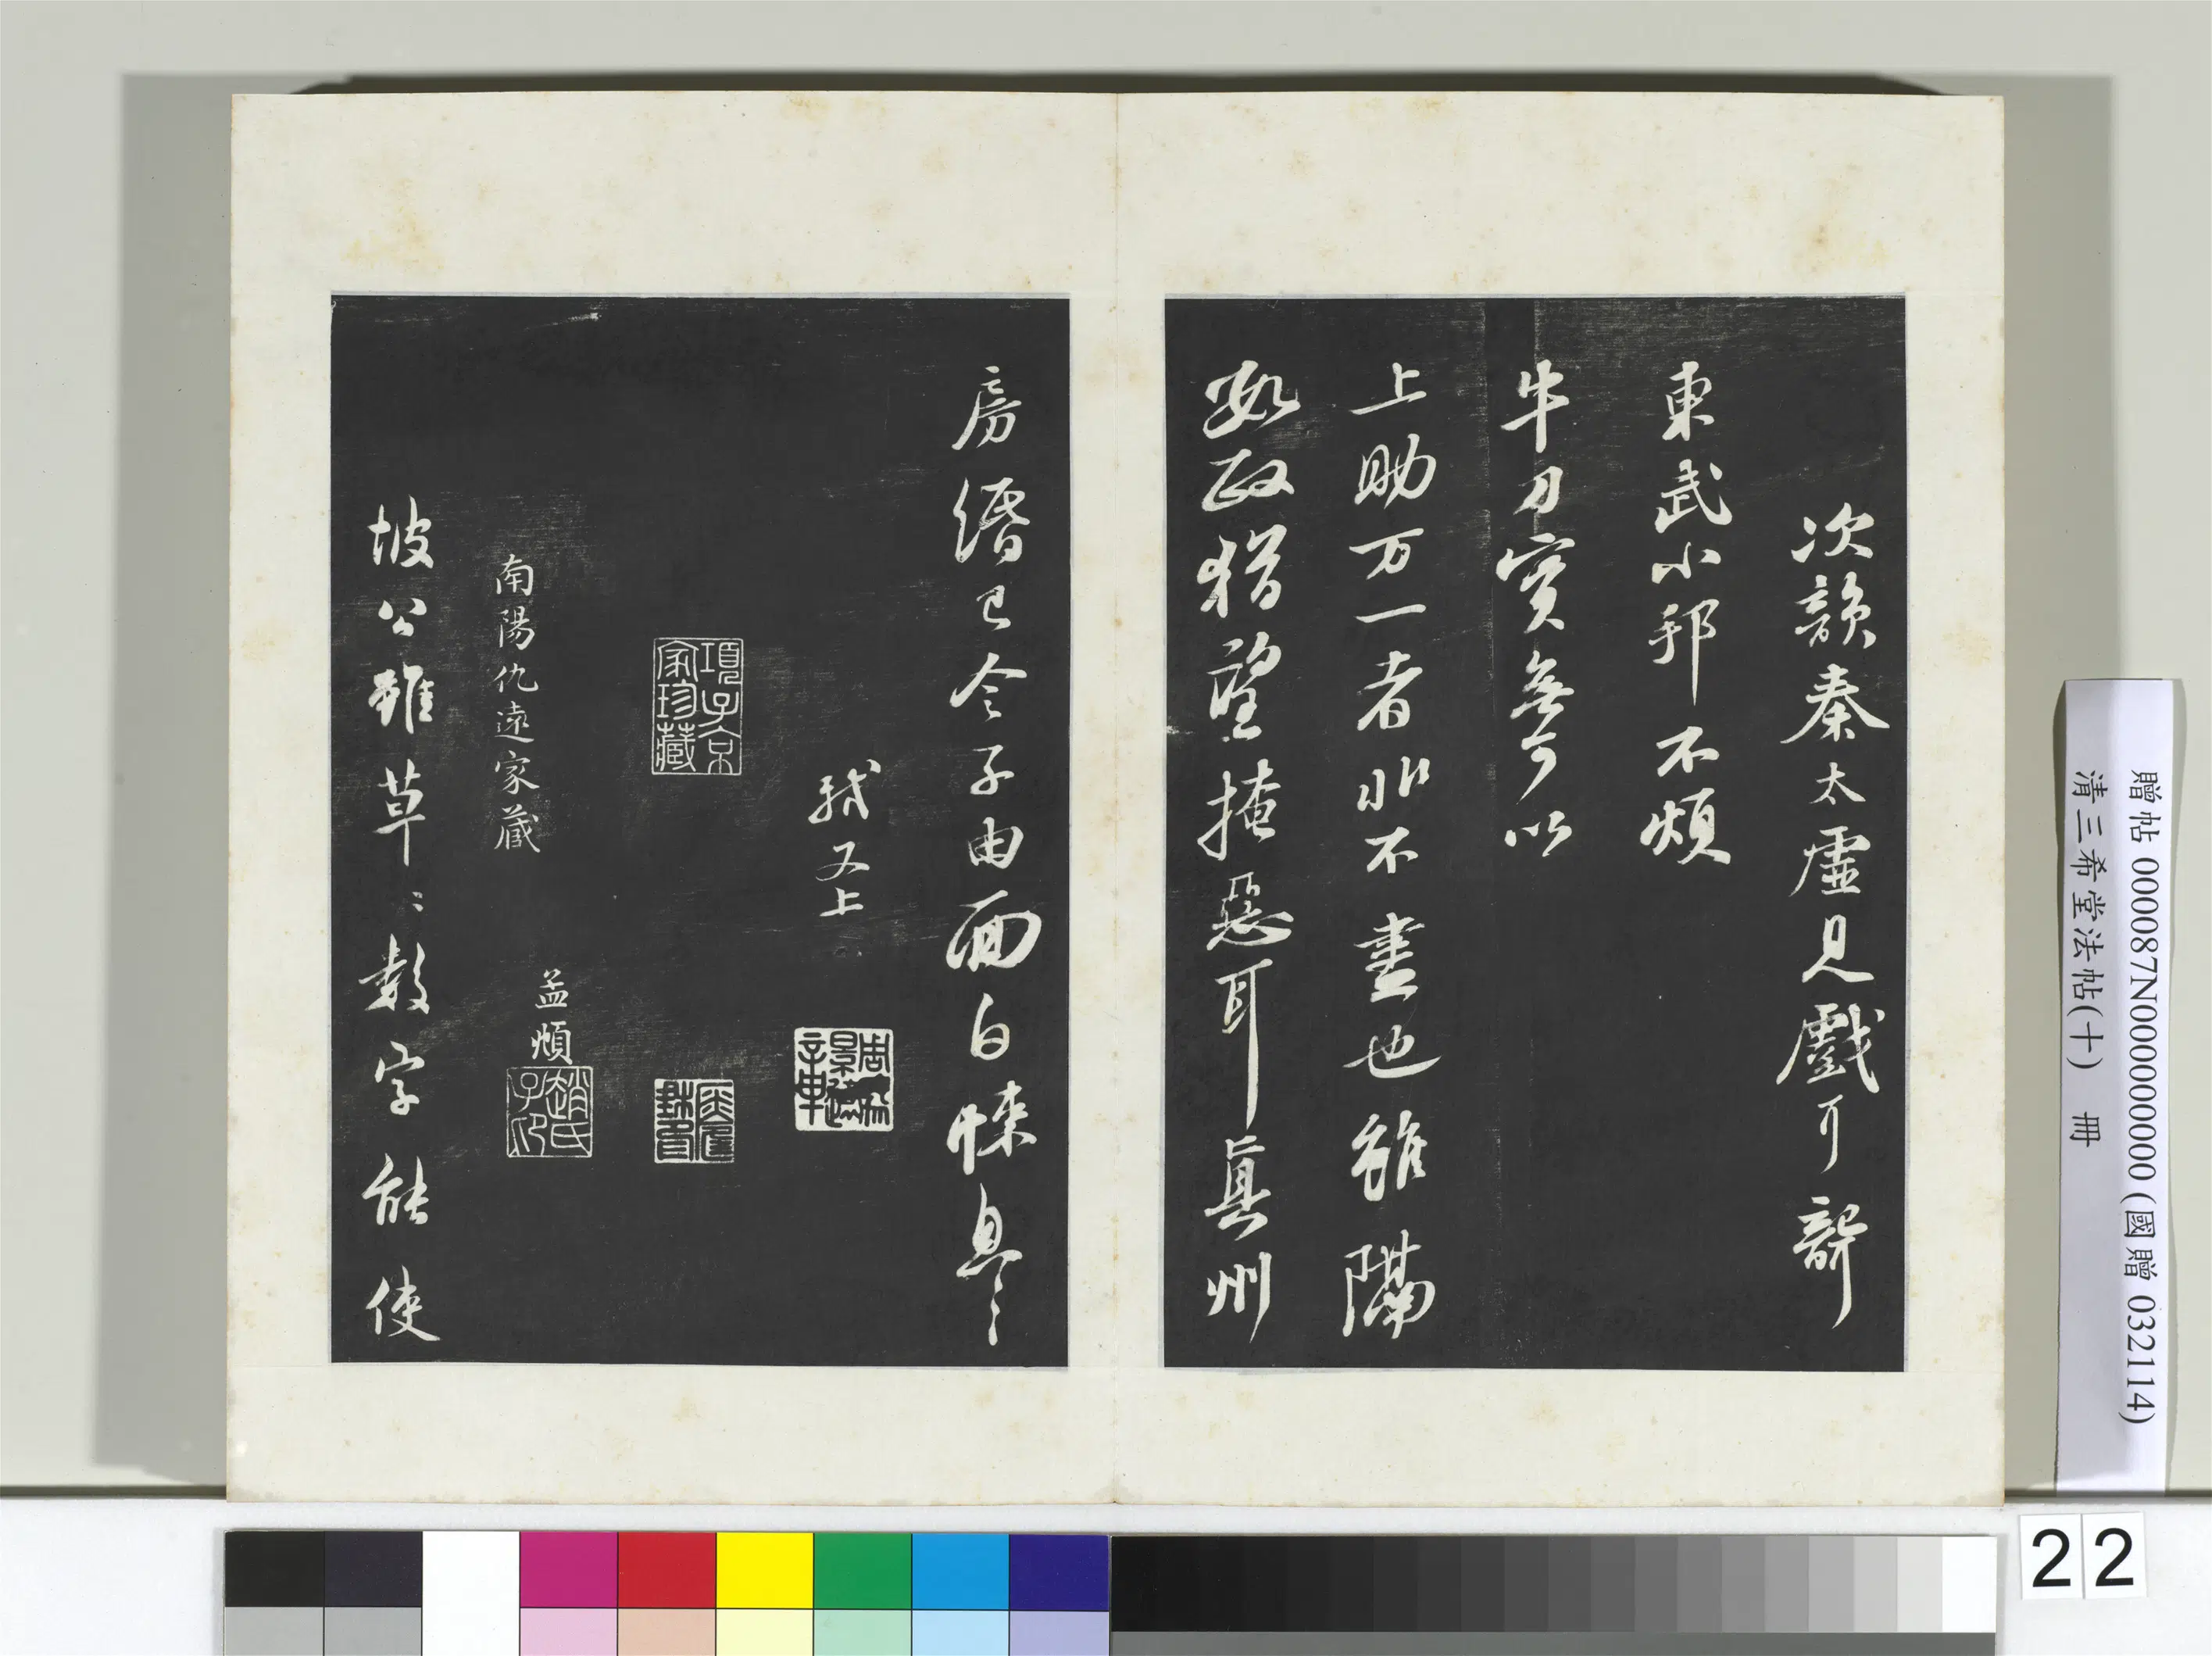 次韻秦太虛見戲耳聾
東武小邦不煩
牛刀實無可以
上助万一者非不盡也雖隔
數政猶望掩惡耳真州
房緡已令子由面白悚息〻
軾又上
項子京家珍藏
南陽仇遠家藏
孟頫
趙氏子印
坡公雖草〻數字能使
贈帖 000087N000000000 (國贈 032114)
清三希堂法帖(十) 冊
22